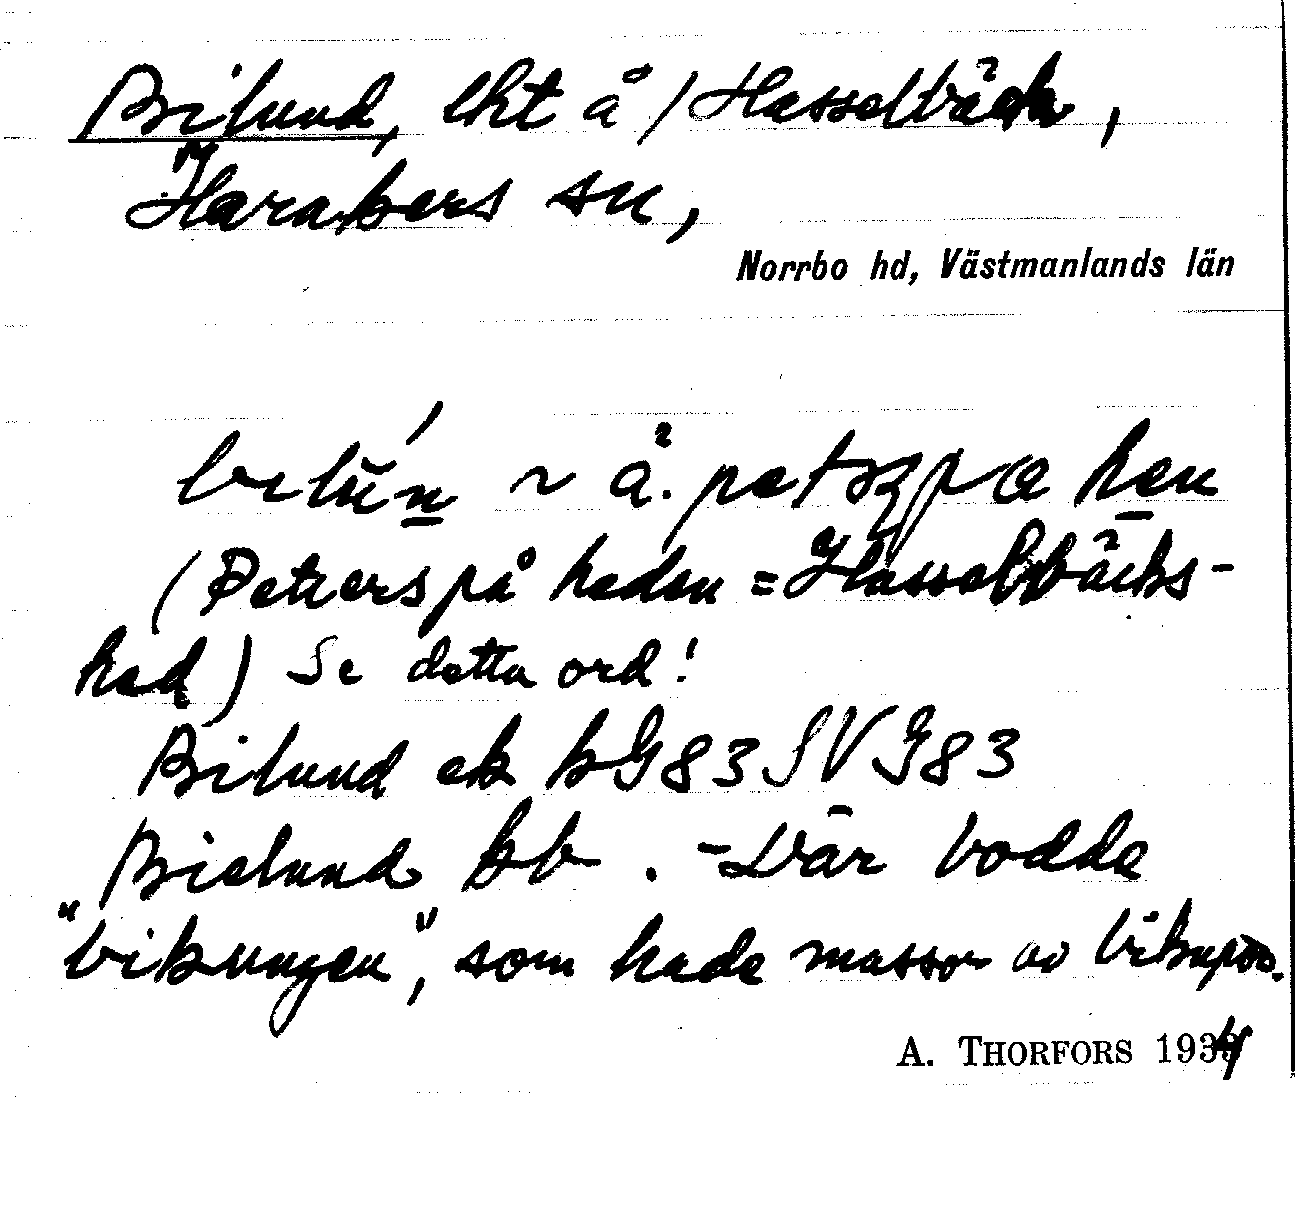 Bilund, lht å /Hasselbäck,
Harakers sn,
Norrbo hd, Västmanlands län
~ å.
(Petrers på heden = Hasselbäcks-
hed) Se detta ord!
Bilund ek hG83 SVG83
Bielund kb. - Där bodde
"bikungen", som hade massor av bikupor.
A. THORFORS 1934